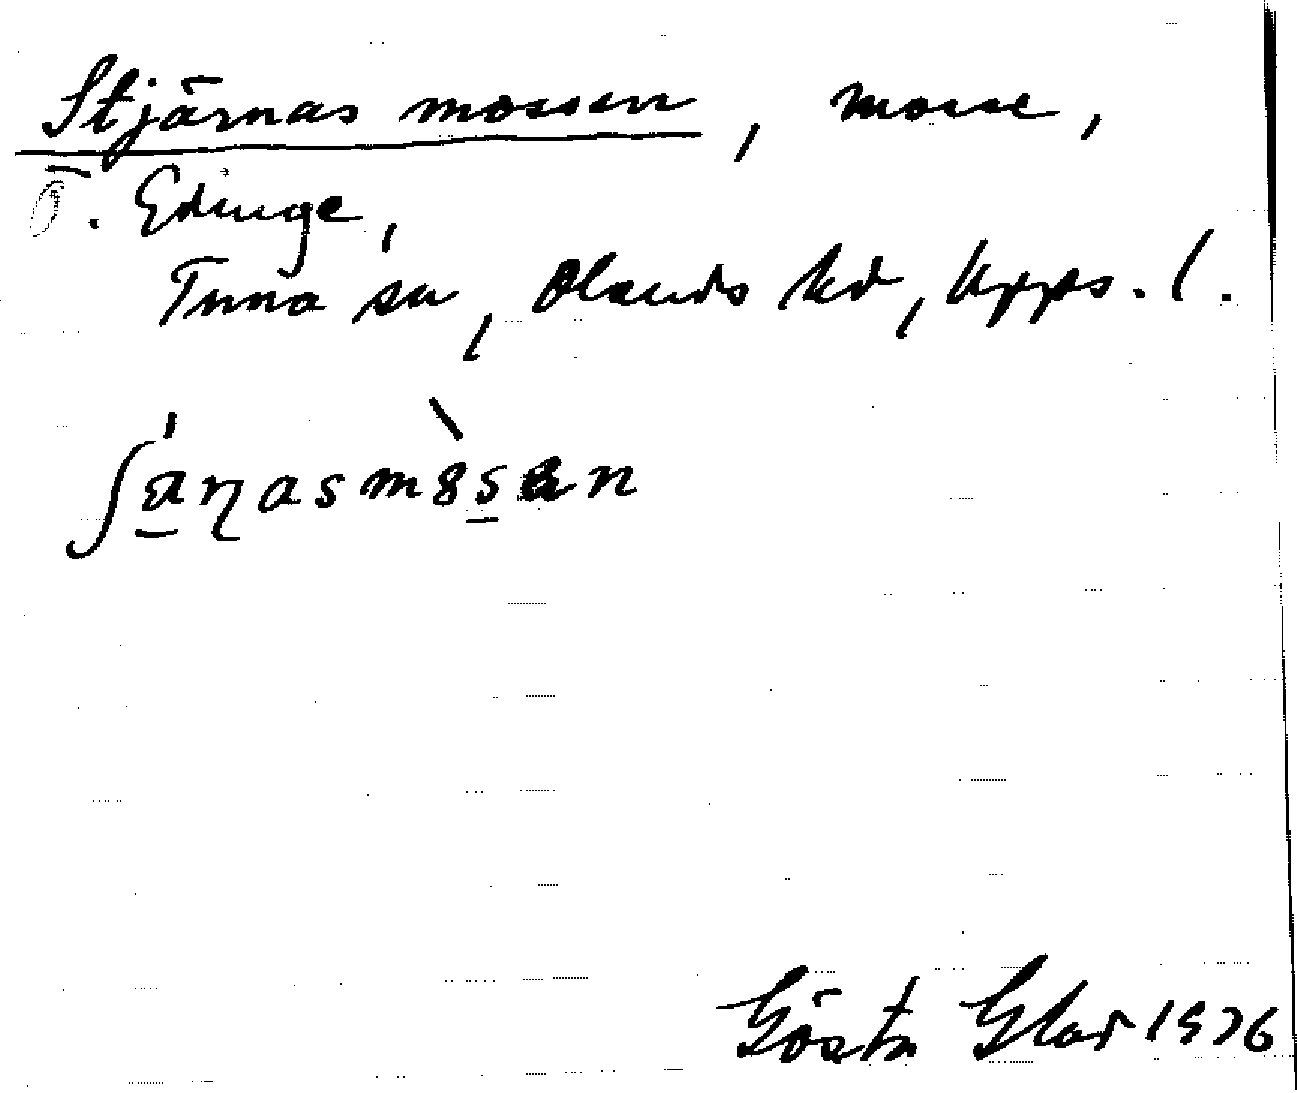 Stjärnas mossen, mosse,
Ö. Edinge,
Tuna sn, Olands hd, Upps. l.
ʃa̱ɳasmȣ̀s̱ən
Gösta Glad 1976